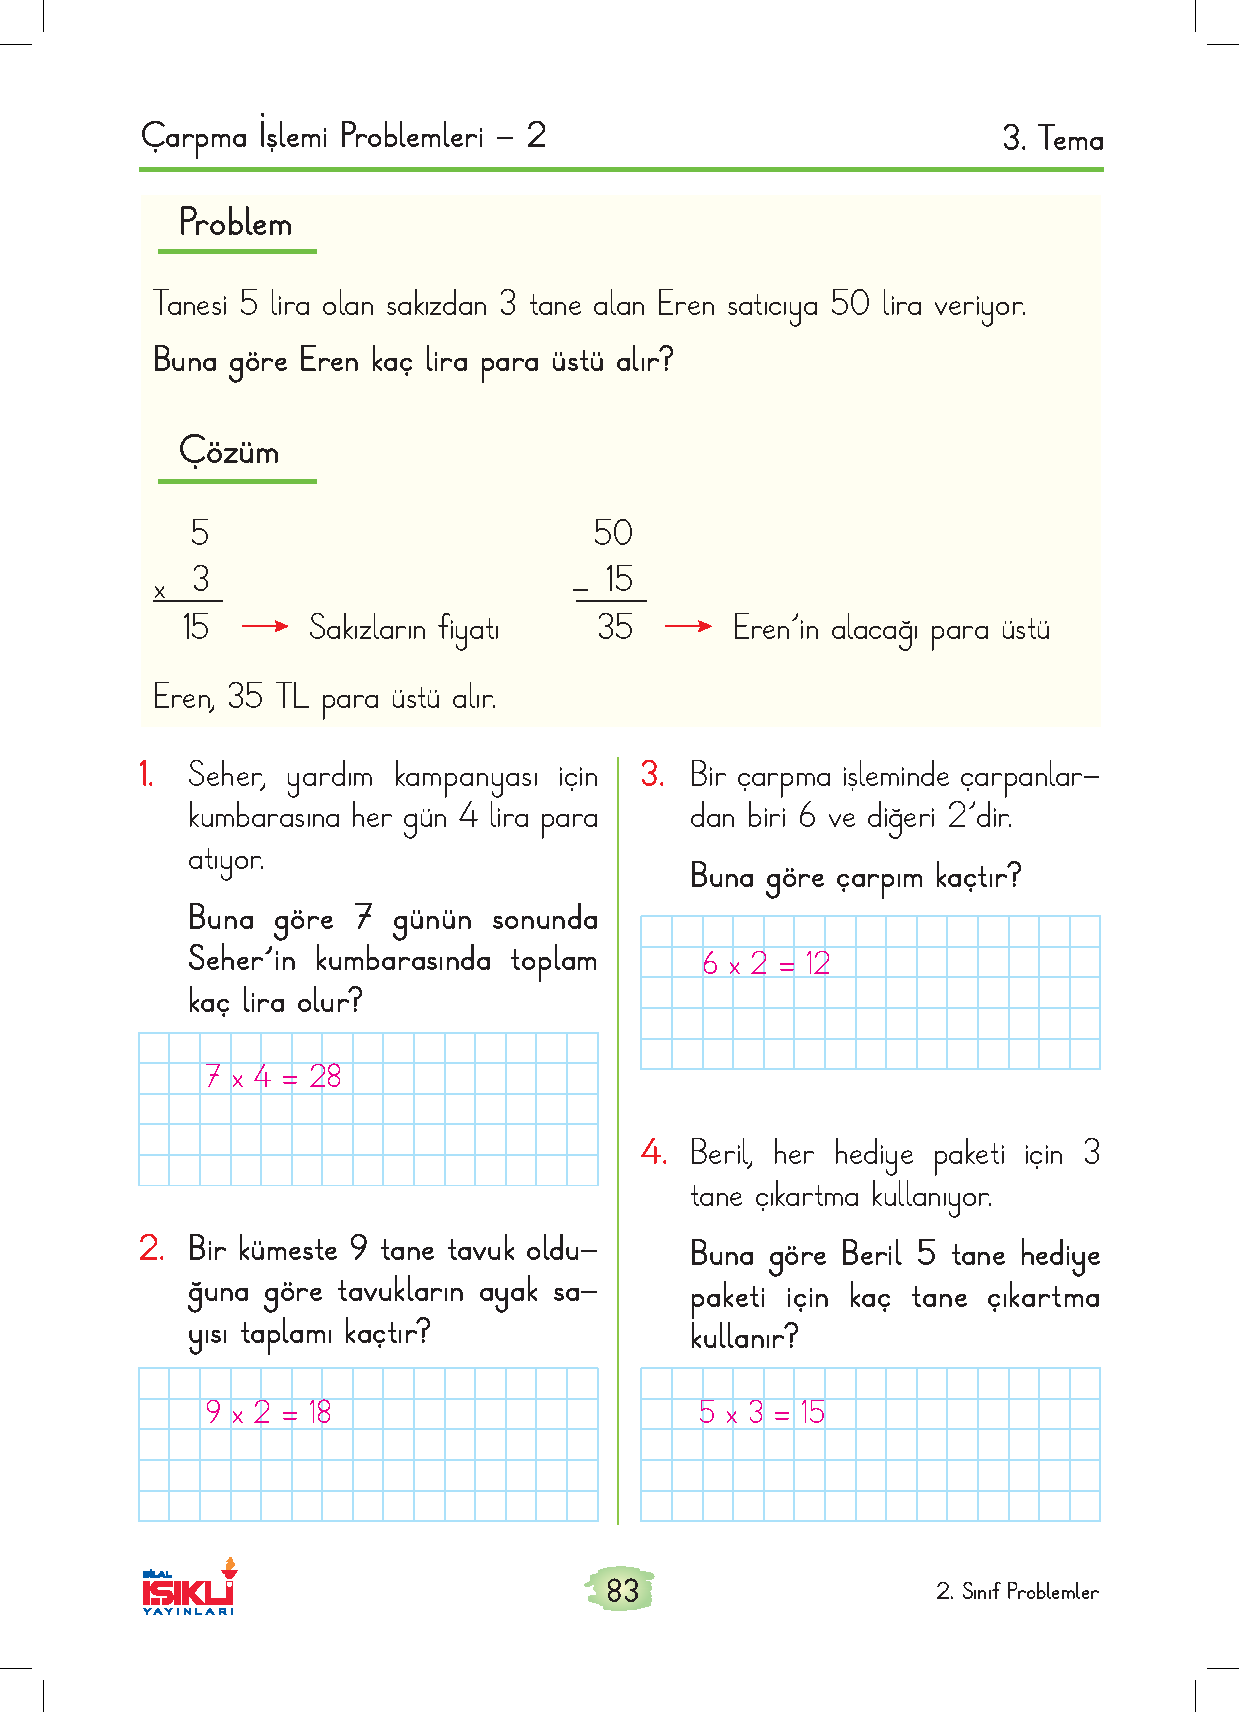 Çarpma İşlemi Problemleri – 2
3. Tema
Problem
Tanesi 5 lira olan sakızdan 3 tane alan Eren satıcıya 50 lira veriyor.
Buna göre Eren kaç lira para üstü alır?
Çözüm
5
x 3
15 Sakızların fiyatı
50
– 15
35 Eren'in alacağı para üstü
Eren, 35 TL para üstü alır.
1. Seher, yardım kampanyası için
kumbarasına her gün 4 lira para
atıyor.
Buna göre 7 günün sonunda
Seher'in kumbarasında toplam
kaç lira olur?
7 x 4 = 28
2. Bir kümeste 9 tane tavuk oldu-
ğuna göre tavukların ayak sa-
yısı taplamı kaçtır?
9 x 2 = 18
3. Bir çarpma işleminde çarpanlar-
dan biri 6 ve diğeri 2'dir.
Buna göre çarpım kaçtır?
6 x 2 = 12
4. Beril, her hediye paketi için 3
tane çıkartma kullanıyor.
Buna göre Beril 5 tane hediye
paketi için kaç tane çıkartma
kullanır?
5 x 3 = 15
BİLAL
IŞIKLI
YAYINLARI
83
2. Sınıf Problemler